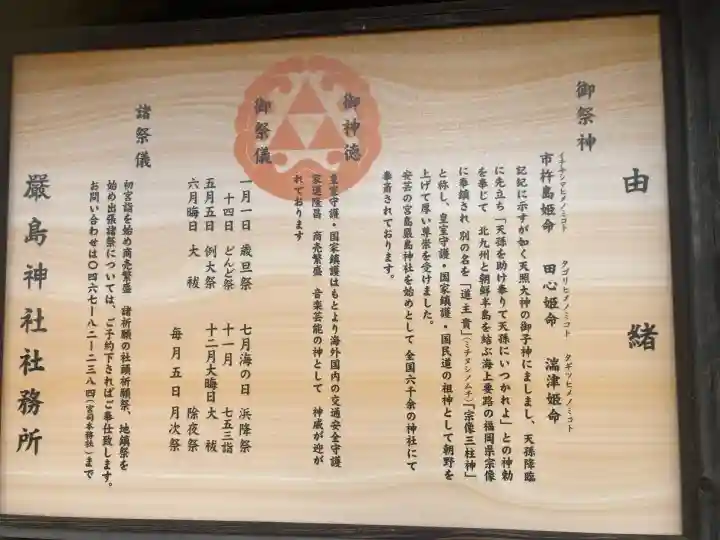 由緒
御祭神
イチキシマヒメノミコト タゴリヒメノミコト タギツヒメノミコト
市杵島姫命 田心姫命 湍津姫命
記紀に示すが如く天照大神の御子神にましまし、天孫降臨
に先立ち「天孫を助け奉りて天孫にいつかれよ」との神勅
を奉じて 北九州と朝鮮半島を結ぶ海上要路の福岡県宗像
に奉鎮され 別の名を「道主貴」(ミチヌシノムチ)「宗像三柱神」
と称し、皇室守護・国家鎮護・国民道の祖神として朝野を
上げて厚い尊崇を受けました。
安芸の宮島厳島神社を始めとして 全国六千余の神社にて
奉斎されております。
御神徳
皇室守護・国家鎮護はもとより海外国内の交通安全守護
家道隆昌 商売繁盛 音楽芸能の神として 神威が迎が
れております
御祭儀
一月一日 歳旦祭 七月海の日 浜降祭
十四日 どんど祭 十一月 七五三詣
五月五日 例大祭 十二月大晦日 大祓
六月晦日 大祓 除夜祭
毎月五日 月次祭
諸祭儀
初宮詣を始め商売繁盛 諸祈願の社頭祈願祭、地鎮祭を
始め出張諸祭については、ご予約下さればご奉仕致します。
お問い合わせは〇四六七ー八二ー二三八四(宮司本務社)まで
厳島神社社務所